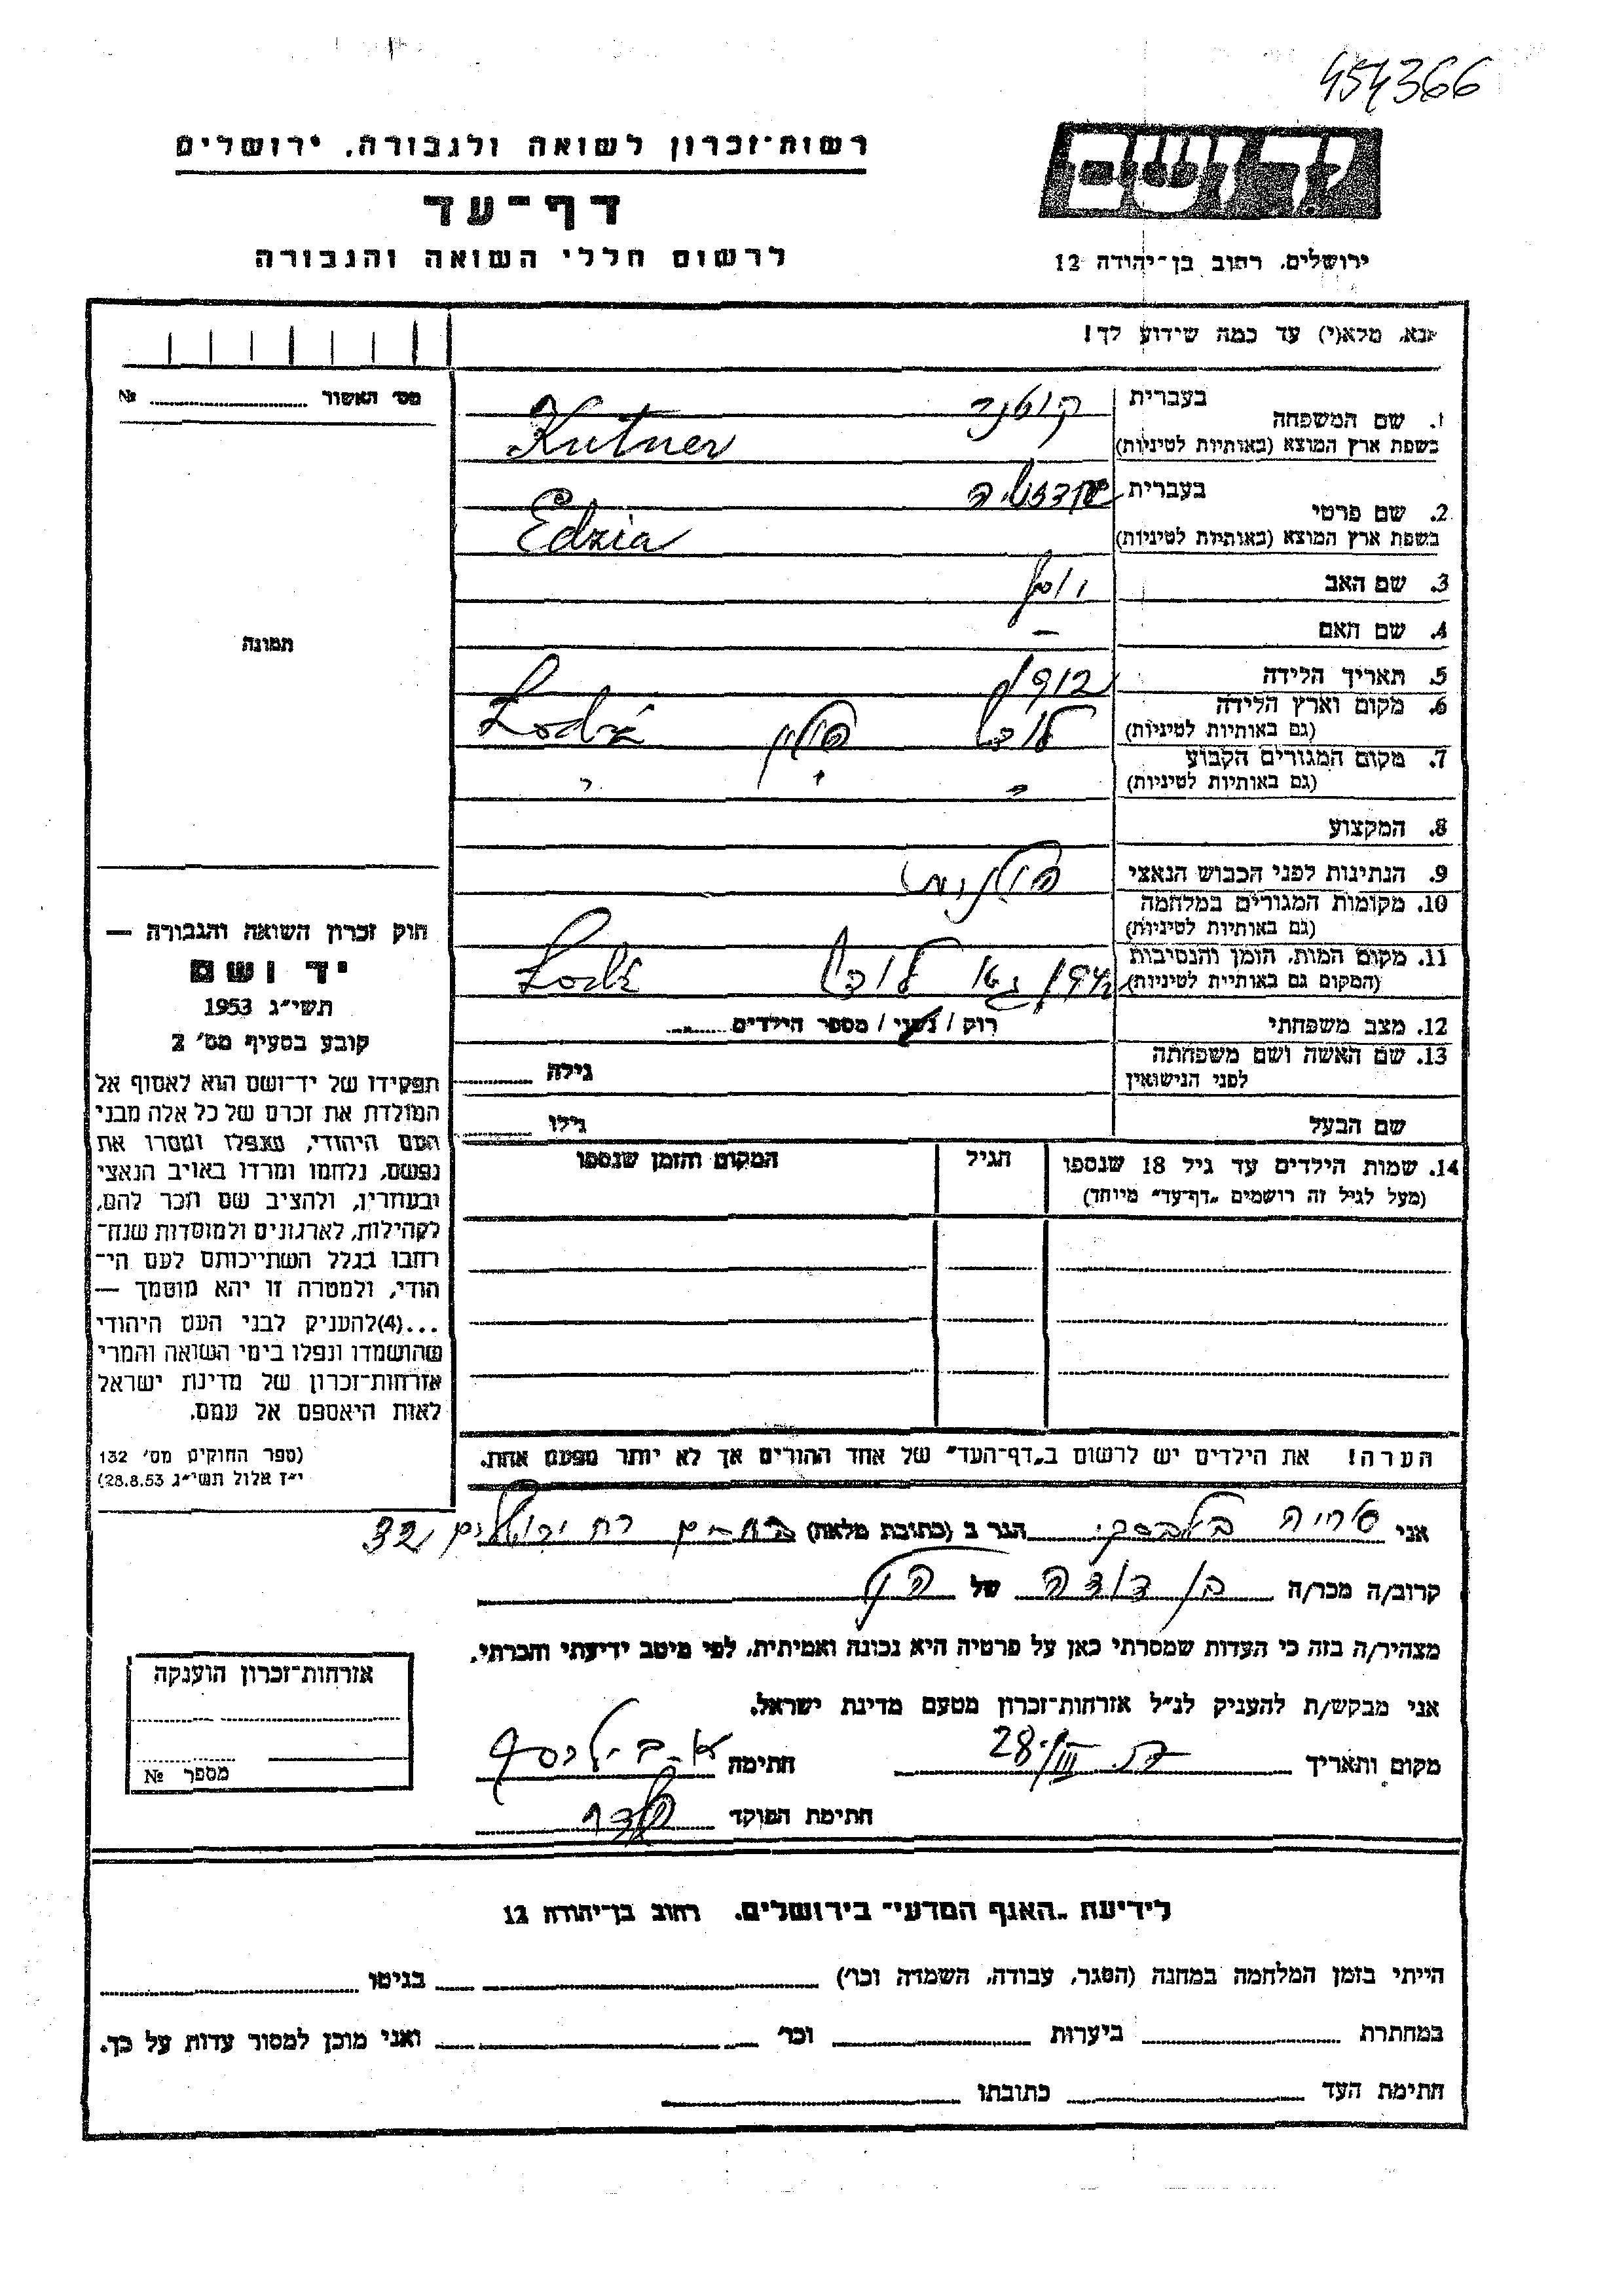 454366
רשות־זכרון לשואה ולגבורה, ירושלים
יד ושם
דף־עד
לרשום חללי השואה והגבורה
ירושלים, רחוב בן־יהודה 12
נא, מלא(י) עד כמה שידוע לך!
מס׳ האשור № 
1. שם המשפחה בעברית קוטנר
בשפת ארץ המוצא (באותיות לטיניות) Kutner
2. שם פרטי בעברית
בשפת ארץ המוצא (באותיות לטיניות) Edzia
3. שם האב יוסף
4. שם האם –
5. תאריך הלידה 1912
6. מקום וארץ הלידה (גם באותיות לטיניות) לודז׳ פולין Lodź
7. מקום המגורים הקבוע (גם באותיות לטיניות) " " "
8. המקצוע
9. הנתינות לפני הכבוש הנאצי פולנית
10. מקומות המגורים במלחמה (גם באותיות לטיניות)
11. מקום המות, הזמן והנסיבות (המקום גם באותיות לטיניות) 1942 גטו לודז׳ Lodź
12. מצב משפחתי רווק / נשוי / מספר הילדים
13. שם האשה ושם משפחתה לפני הנישואין גילה
שם הבעל גילו
14. שמות הילדים עד גיל 18 שנספו הגיל המקום והזמן שנספו
(מעל לגיל זה רושמים „דף־עד" מיוחד)
הערה! את הילדים יש לרשום ב„דף־העד" של אחד ההורים אך לא יותר מפעם אחת.
תמונה
חוק זכרון השואה והגבורה —
יד ושם
תשי״ג 1953
קובע בסעיף מס׳ 2
תפקידו של יד־ושם הוא לאסוף אל
המולדת את זכרם של כל אלה מבני
העם היהודי, שנפלו ומסרו את
נפשם, נלחמו ומרדו באויב הנאצי
ובעוזריו, ולהציב שם וזכר להם,
לקהילות, לארגונים ולמוסדות שנח־
רחבו בגלל השתייכותם לעם הי־
הודי, ולמטרה זו יהא מוסמך —
...(4)להעניק לבני העם היהודי
שהושמדו ונפלו בימי השואה והמרי
אזרחות־זכרון של מדינת ישראל
לאות היאספם אל עמם.
(ספר החוקים מס׳ 132
י״ז אלול תשי״ג 28.8.53)
אני הגר ב (כתובת מלאה) בת־ים רח ירושלים 32
קרוב/ה מכר/ה בן דודה של הנ״ל
מצהיר/ה בזה כי העדות שמסרתי כאן על פרטיה היא נכונה ואמיתית, לפי מיטב ידיעתי והכרתי.
אני מבקש/ת להעניק לנ״ל אזרחות־זכרון מטעם מדינת ישראל.
מקום ותאריך 28/III חתימה
חתימת הפוקד
אזרחות־זכרון הוענקה
מספר №
לידיעת „האגף המדעי" בירושלים, רחוב בן־יהודה 12
הייתי בזמן המלחמה במחנה (הסגר, עבודה, השמדה וכו׳) בגיטו
במחתרת ביערות וכו׳ ואני מוכן למסור עדות על כך.
חתימת העד כתובתו